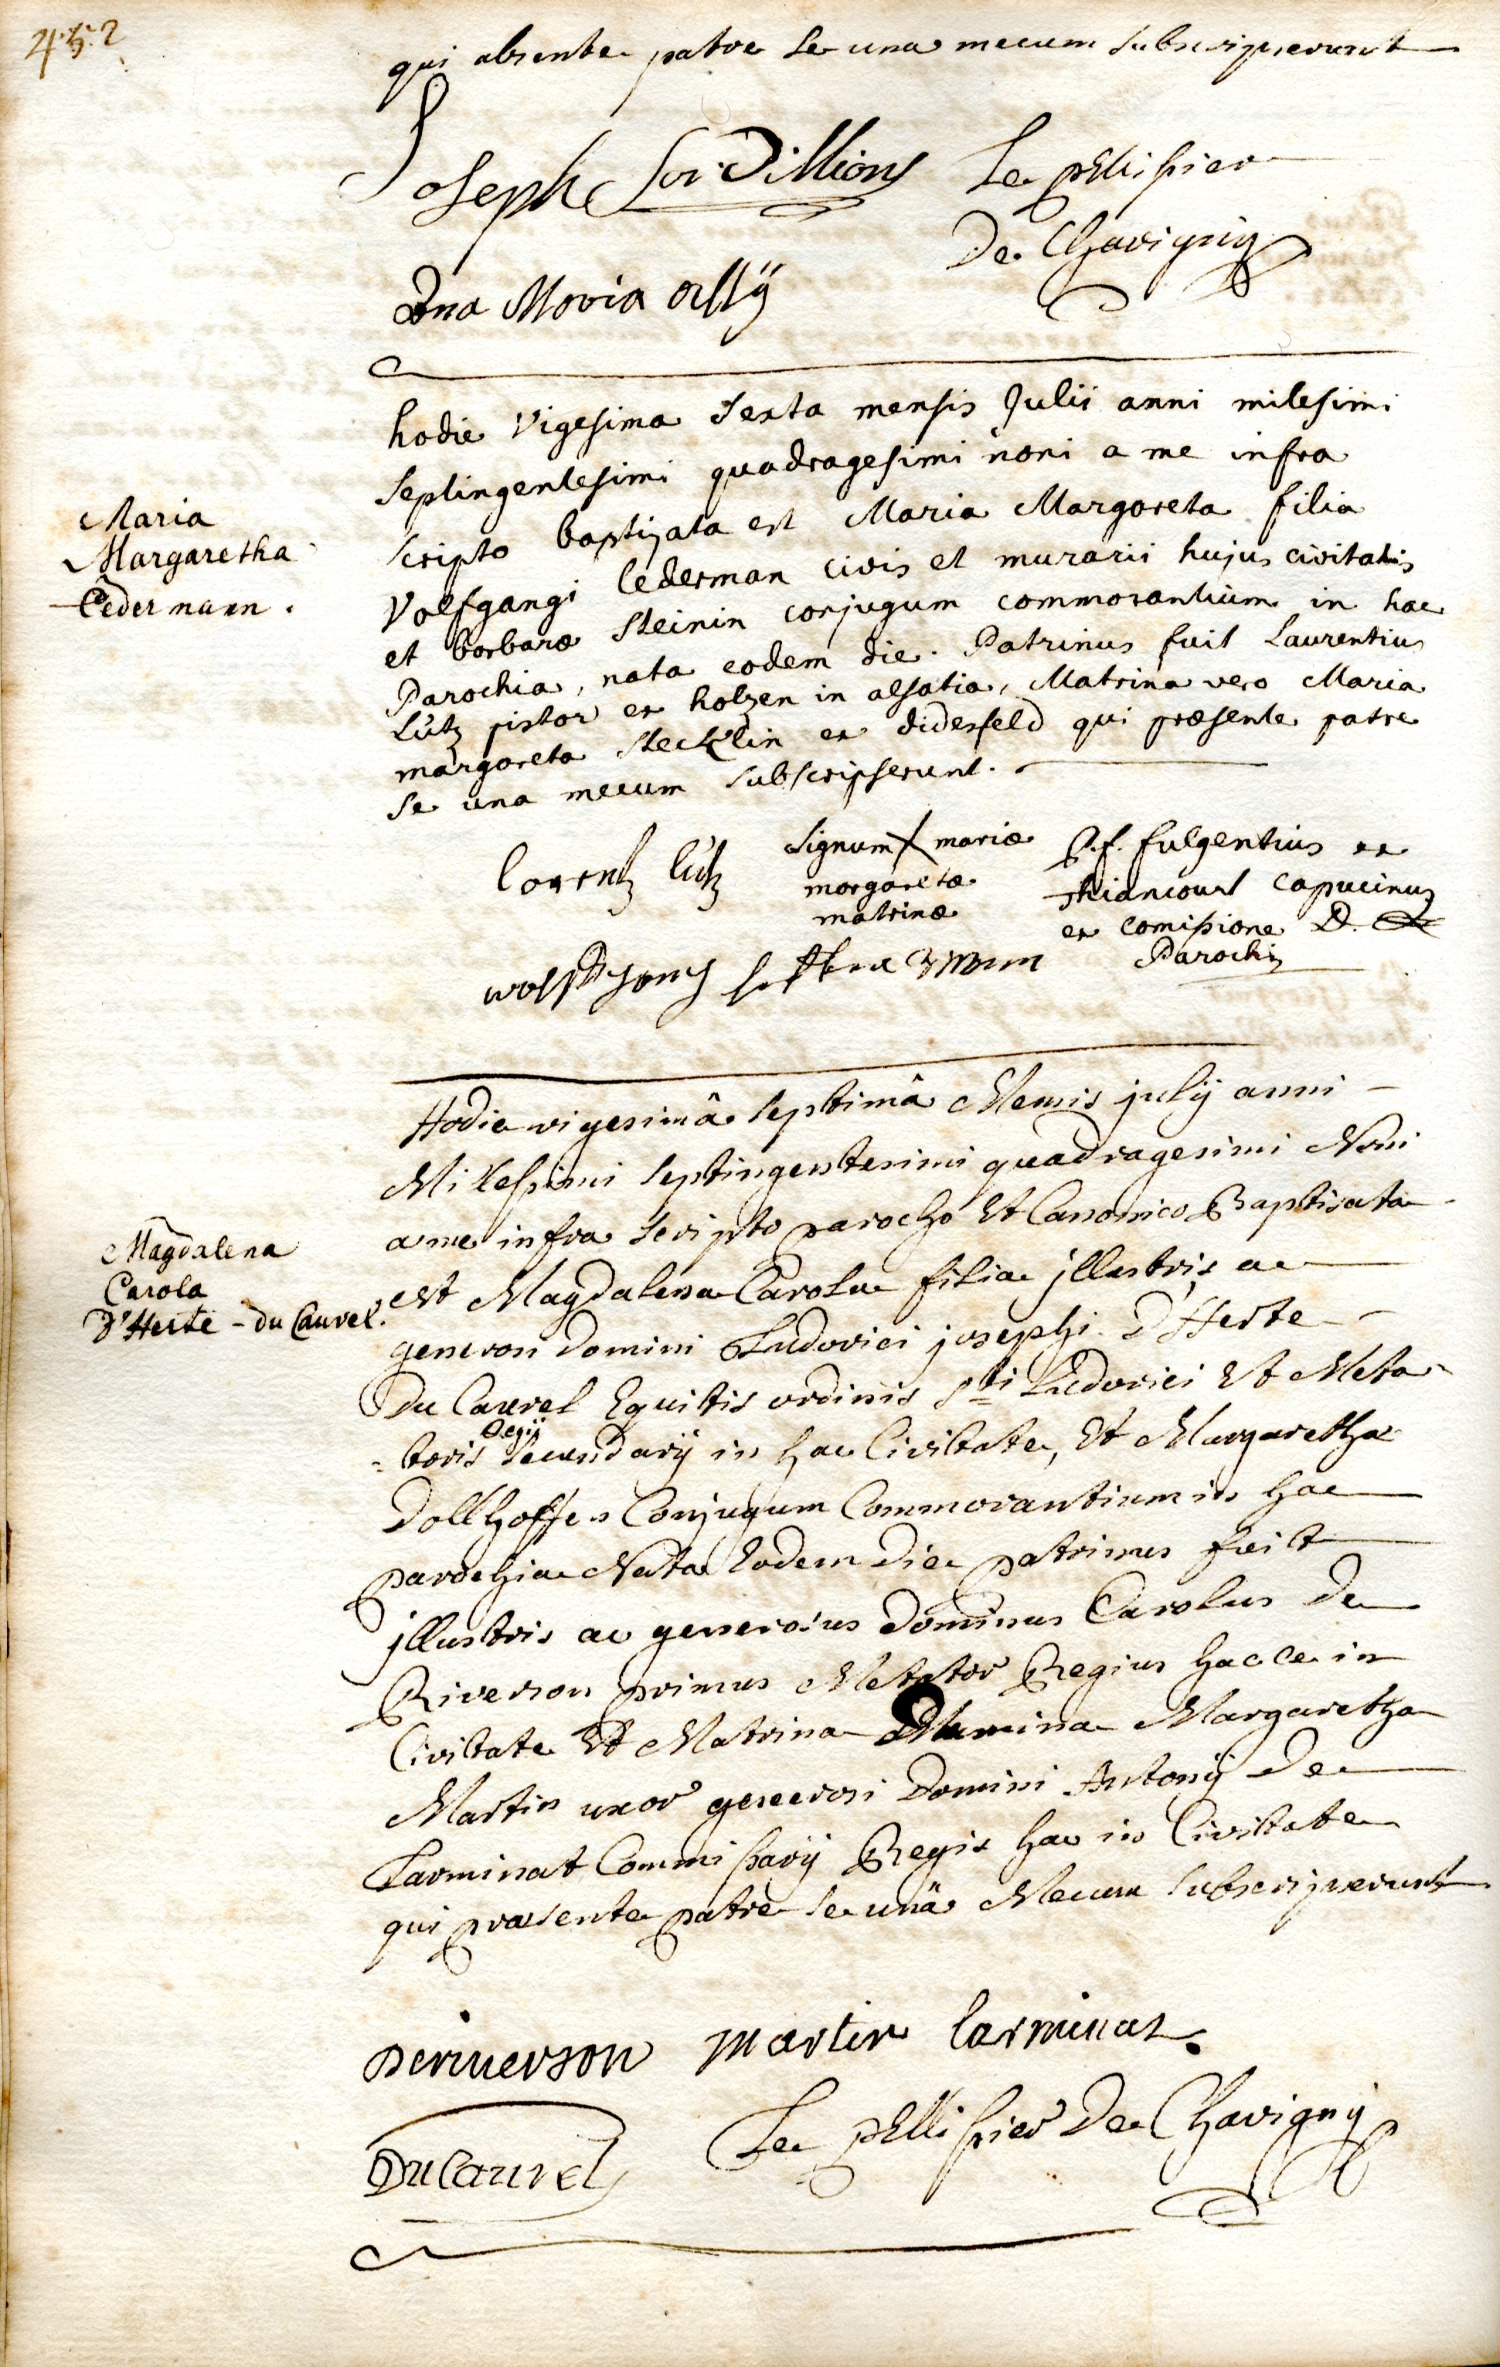 452
qui absente patre se una mecum subscripserunt
Joseph
Le pellissier
De Chavigny
Ana Maria
hodie Vigesima sexta mensis Julii anni milesimi
septingentesimi quadragesimi noni a me infra
scripto baptizata est Maria Margareta filia
Volfgangi lederman civis et murarii hujus civitatis
et barbaræ steinin conjugum commorantium in hac
Parochia, nata eodem die. Patrinus fuit Laurentius
Lutz pistor ex holzen in alsatia, Matrina vero Maria
margareta stecklin ex didesfeld qui præsente patre
se una mecum subscripserunt.
Maria
Margaretha
Ledermann.
lorentz lutz
signum X mariæ
margaretæ
matrinæ
P. f. fulgentius ex
thiancourt capucinus
ex comissione D.
Parochi
Hodie vigesimâ septimâ Mensis julij anni
Millessimi septingentesimi quadragesimi Noni
a me infra scripto parocho Et Canonico Baptisata
est Magdalena Carola filia jllustris ac
generosi domini Ludovici josephi D'Herte
Du Caurel Equitis ordinis Sti Ludovici Et Meta-
-toris Regij secundarij in hac Civitate, Et Margaretha
Dollhoffen Conjugum Commorantium in hac
parochia Nata Eodem die patrinus fuit
jllustris ac generosus dominus Carolus de
Riverson primus Metator Regius hacce in
Civitate Et Matrina Domina Margaretha
Martin uxor generosi Domini Antonij de
Larminat Commissarij Regis hac in Civitate
qui præsente patre se unâ Mecum subscripserunt
Magdalena
Carola
D'Herte - du Caurel.
Deriverson martin larminat.
DuCaurel
Le pellissier De Chavigny